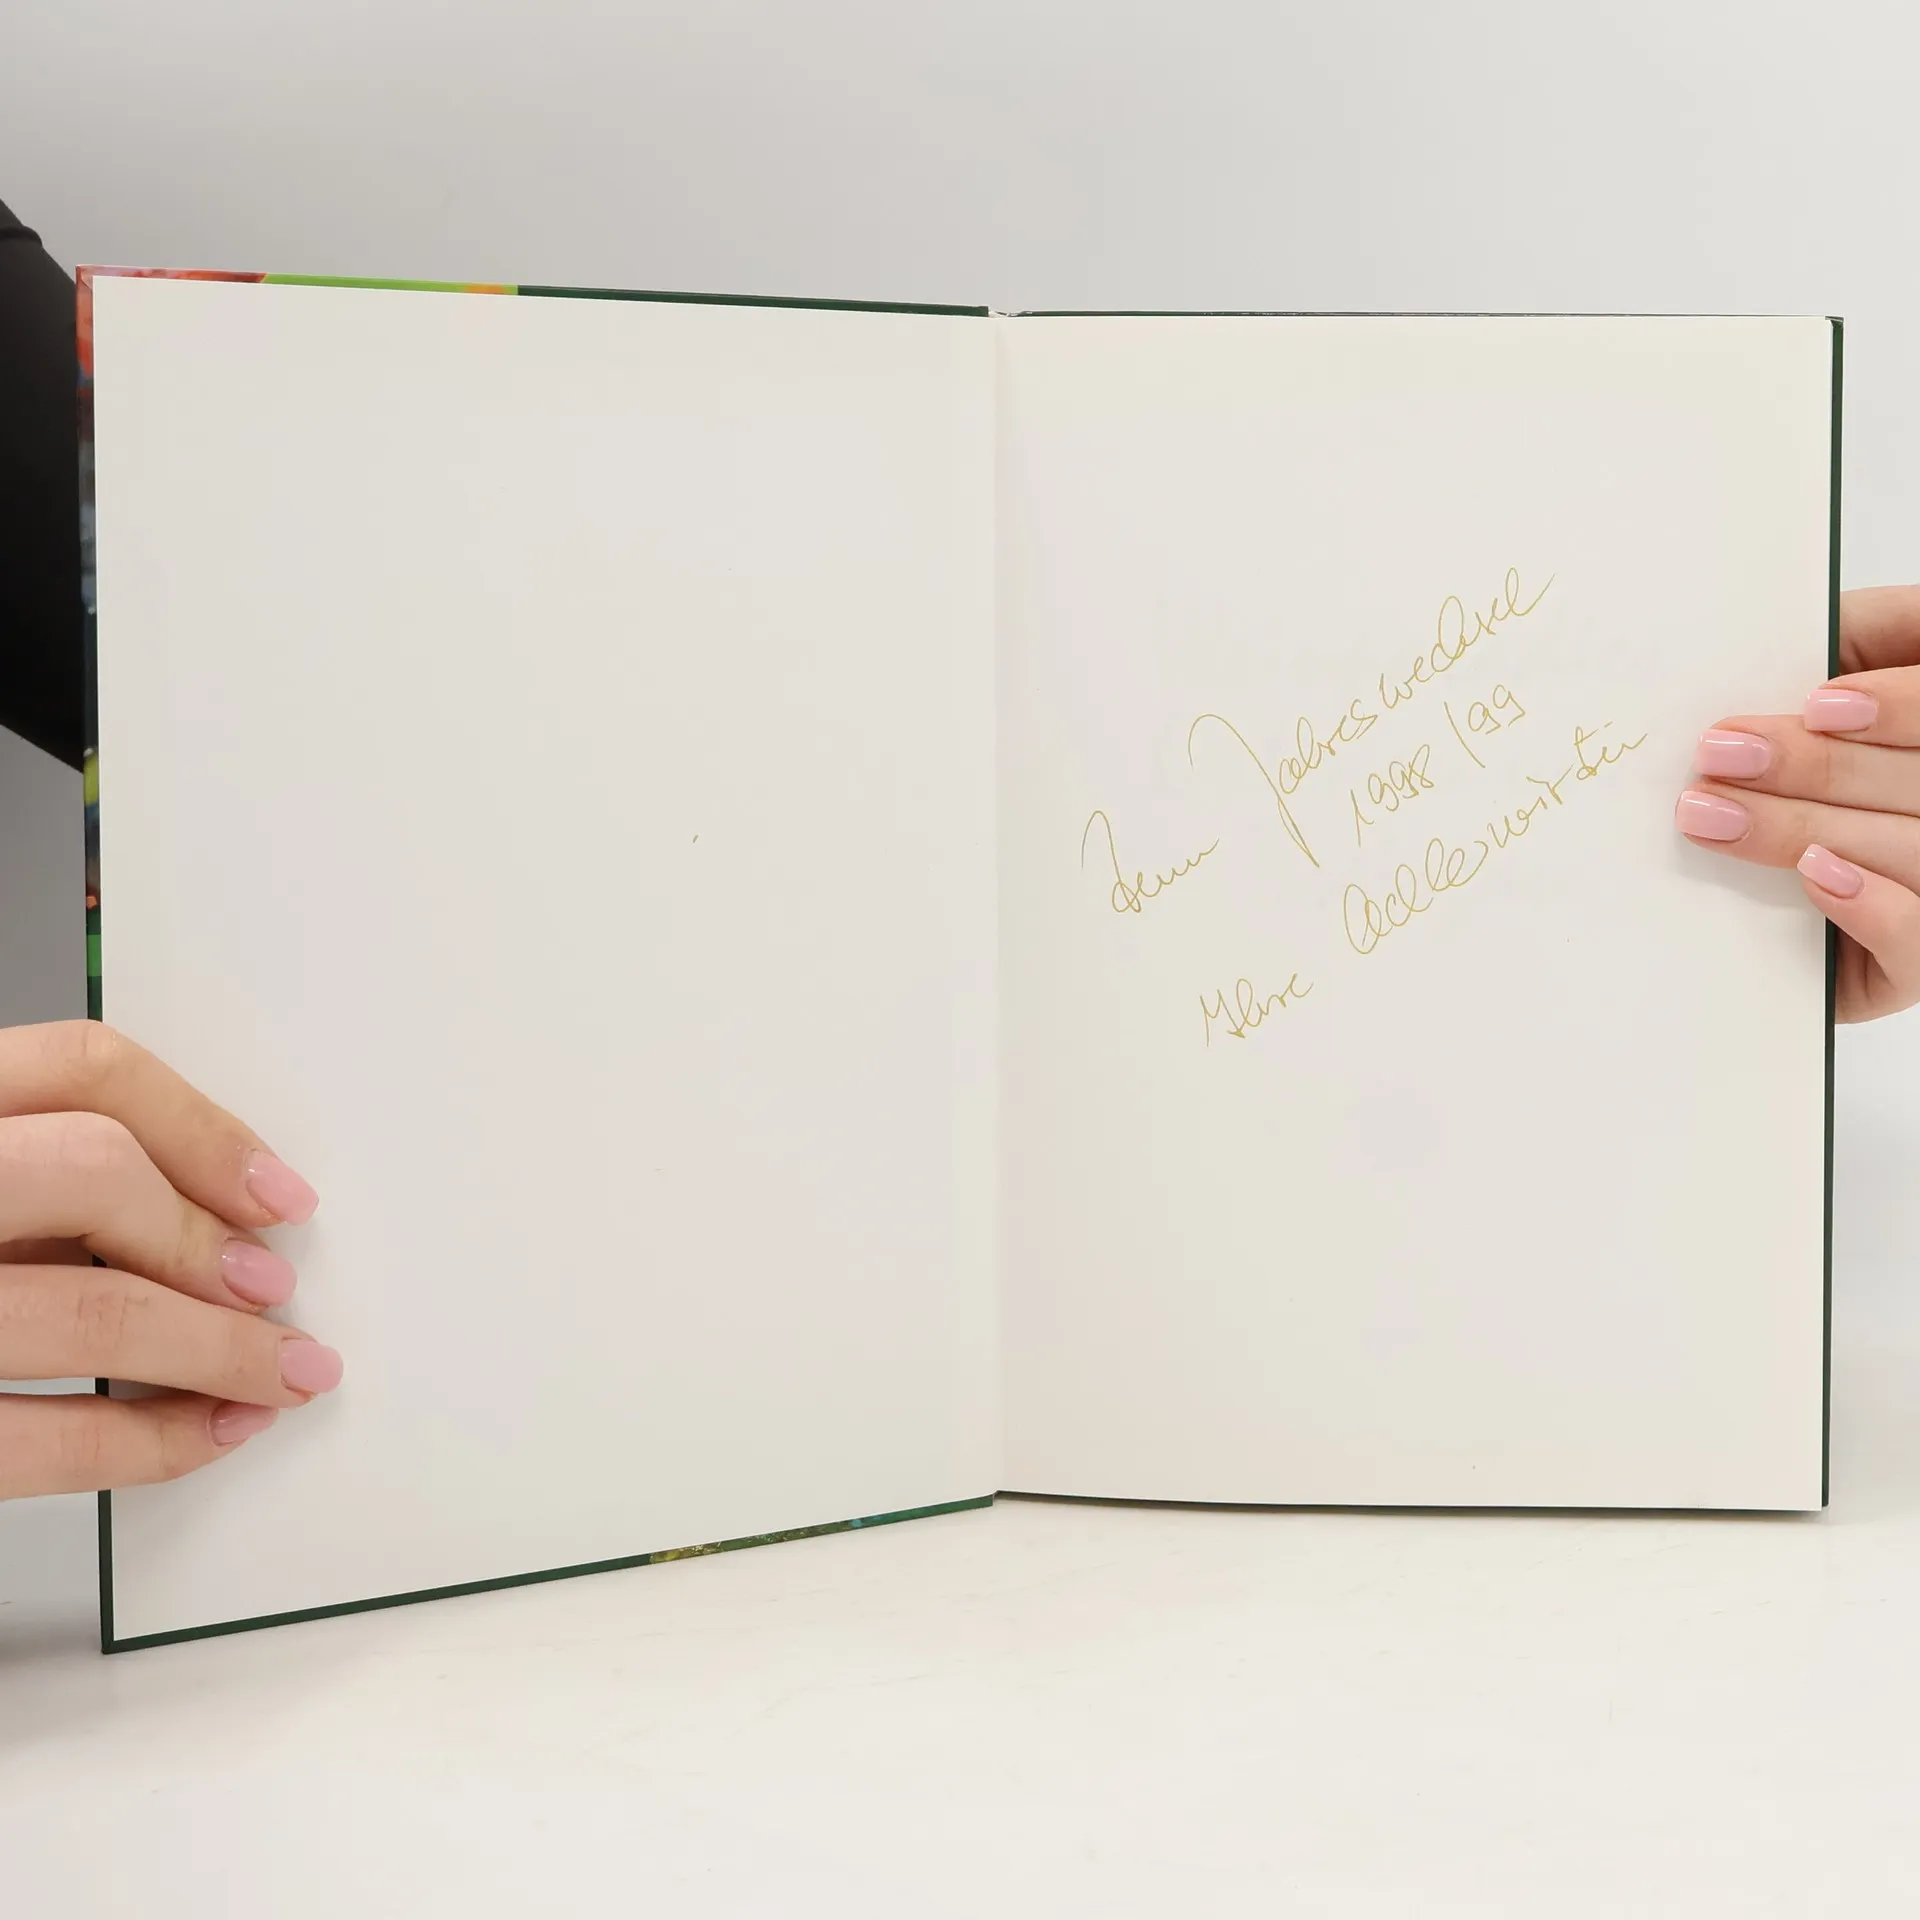 Zum Jahreswechsel
1998/99
Ihre Adlerwirtin